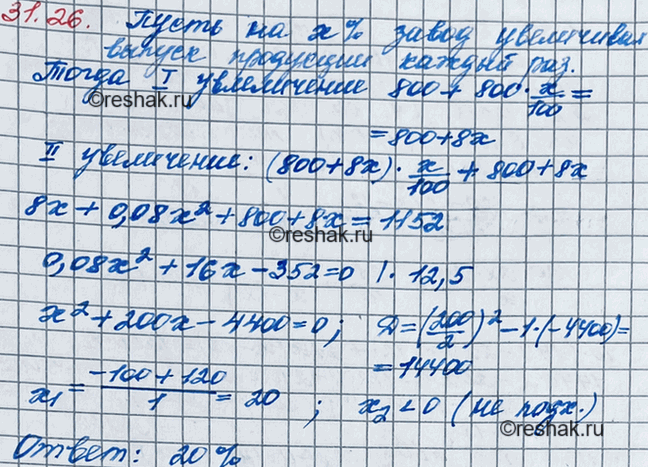 31.26. Пусть на x% завод увеличивал
выпуск продукции каждый раз.
Тогда I увеличение 800 + 800 · x/100 =
©reshak.ru
= 800 + 8x
II увеличение: (800 + 8x) · x/100 + 800 + 8x
8x + 0,08x² + 800 + 8x = 1152
©reshak.ru
0,08x² + 16x - 352 = 0 | · 12,5
x² + 200x - 4400 = 0; Д = (200/2)² - 1 · (-4400) =
= 14400
x₁ = (-100 + 120)/1 = 20 ; x₂ < 0 (не подх.)
©reshak.ru
Ответ: 20%